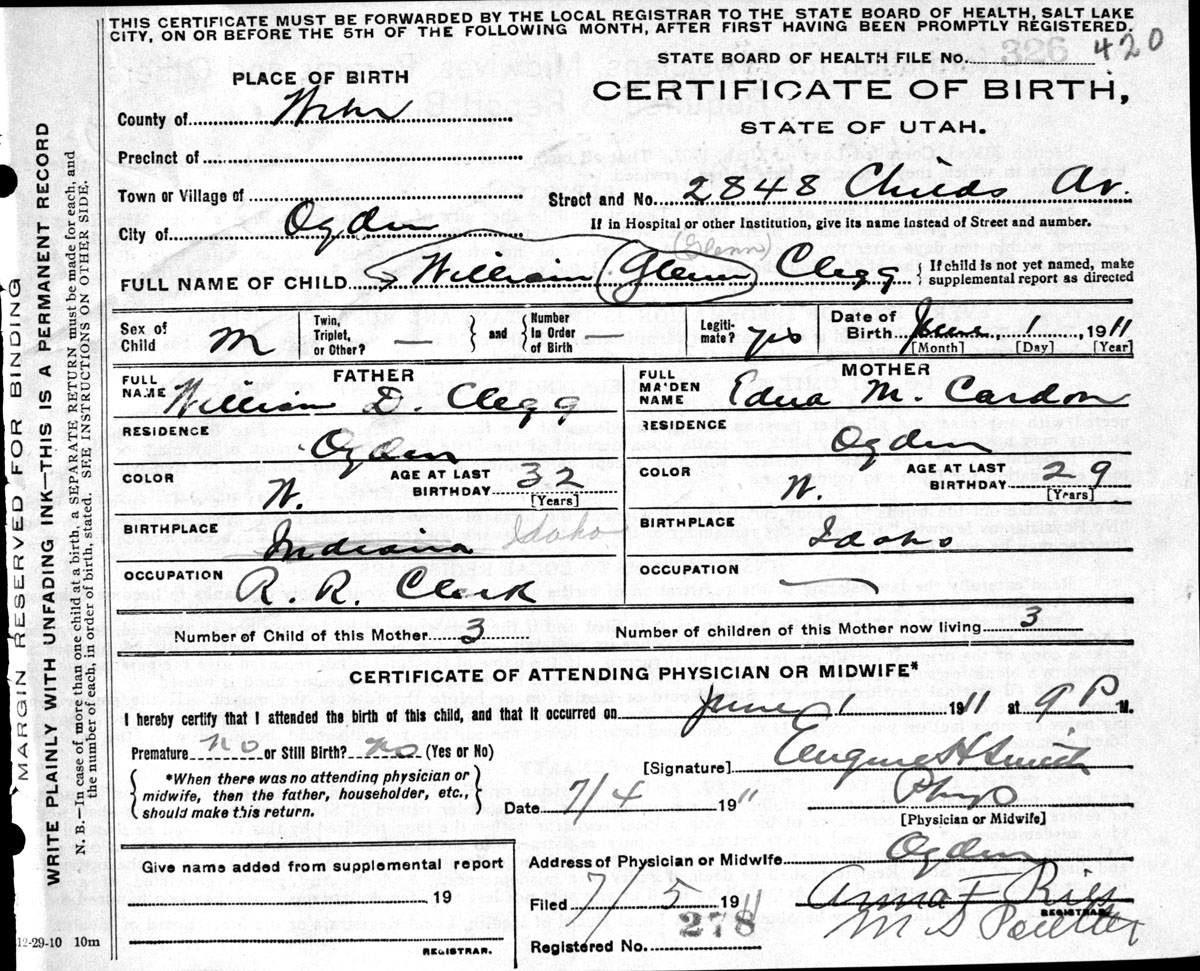 THIS CERTIFICATE MUST BE FORWARDED BY THE LOCAL REGISTRAR TO THE STATE BOARD OF HEALTH, SALT LAKE
CITY, ON OR BEFORE THE 5TH OF THE FOLLOWING MONTH, AFTER FIRST HAVING BEEN PROMPTLY REGISTERED.
STATE BOARD OF HEALTH FILE No. 326 420
PLACE OF BIRTH
CERTIFICATE OF BIRTH,
STATE OF UTAH.
County of Weber
Precinct of
Town or Village of
Street and No. 2848 Childs Av.
City of Ogden
If in Hospital or other Institution, give its name instead of Street and number.
(Glenn)
FULL NAME OF CHILD William Glenn Clegg { If child is not yet named, make supplemental report as directed
Sex of Child M Twin, Triplet, or Other? — } and { Number in Order of Birth — Legitimate? yes Date of Birth June 1 1911
[Month] [Day] [Year]
FATHER
FULL NAME William D. Clegg
RESIDENCE Ogden
COLOR W. AGE AT LAST BIRTHDAY 32 [Years]
BIRTHPLACE Indiana Idaho
OCCUPATION R. R. Clerk
MOTHER
FULL MAIDEN NAME Edna M. Cardon
RESIDENCE Ogden
COLOR W. AGE AT LAST BIRTHDAY 29 [Years]
BIRTHPLACE Idaho
OCCUPATION —
Number of Child of this Mother 3 Number of children of this Mother now living 3
CERTIFICATE OF ATTENDING PHYSICIAN OR MIDWIFE*
I hereby certify that I attended the birth of this child, and that it occurred on June 1 1911 at 9 P M.
Premature no or Still Birth? no (Yes or No)
[Signature] Eugene H Smith
{ *When there was no attending physician or
midwife, then the father, householder, etc.,
should make this return. }
Date 7/4 1911 Phys
[Physician or Midwife]
Give name added from supplemental report
19
REGISTRAR.
Address of Physician or Midwife Ogden
Filed 7/5 1911 Anna F
REGISTRAR.
Registered No. 278 M S
12-29-10 10m
MARGIN RESERVED FOR BINDING
WRITE PLAINLY WITH UNFADING INK—THIS IS A PERMANENT RECORD
N. B.—In case of more than one child at a birth, a SEPARATE RETURN must be made for each, and
the number of each, in order of birth, stated. SEE INSTRUCTIONS ON OTHER SIDE.